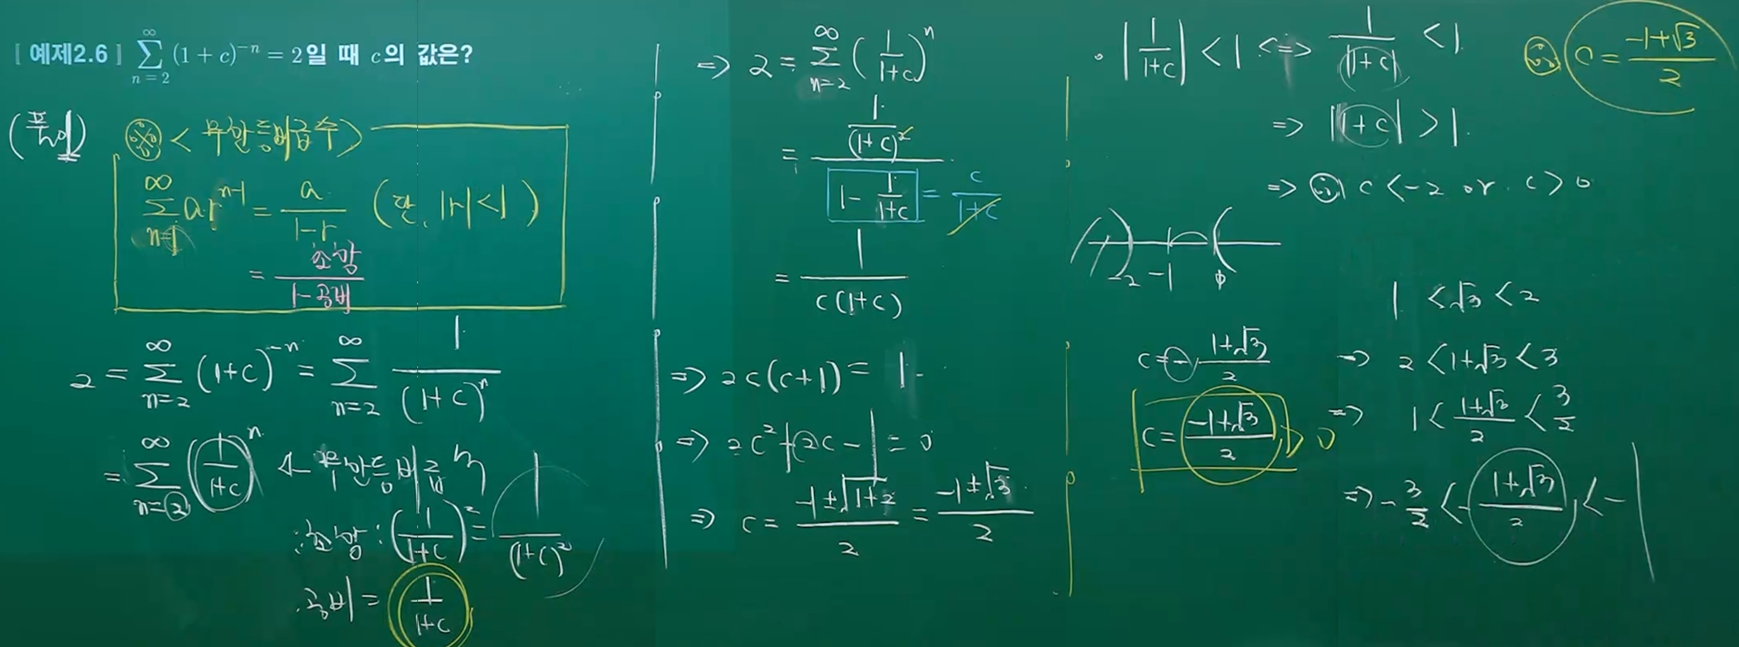 [ 예제2.6 ] ∞∑n=2 (1+c)^{-n} = 2일 때 c의 값은?
(풀이)
※ < 무한등비급수 >
∞∑n=1 ar^{n-1} = a/(1-r) (단, |r|<1)
= 초항/(1-공비)
2 = ∞∑n=2 (1+c)^{-n} = ∞∑n=2 1/(1+c)^n
= ∞∑n=2 (1/(1+c))^n ← 무한등비급수
∴ 초항 : (1/(1+c))^2 = 1/(1+c)^2
공비 = 1/(1+c)
⇒ 2 = ∞∑n=2 (1/(1+c))^n
= (1/(1+c)^2)/(1 - 1/(1+c)) = c/(1+c)
= 1/(c(1+c))
⇒ 2c(c+1) = 1
⇒ 2c^2+2c-1 = 0
⇒ c = (-1±√(1+2))/2 = (-1±√3)/2
· |1/(1+c)| < 1 ⇔ 1/|1+c| < 1
⇒ |1+c| > 1
⇒ ※ c < -2 or c > 0
-2 -1 0
c = -(1+√3)/2
c = (-1+√3)/2 > 0
1 < √3 < 2
⇒ 2 < 1+√3 < 3
⇒ 1 < (1+√3)/2 < 3/2
⇒ -3/2 < -(1+√3)/2 < -1
∴ c = (-1+√3)/2